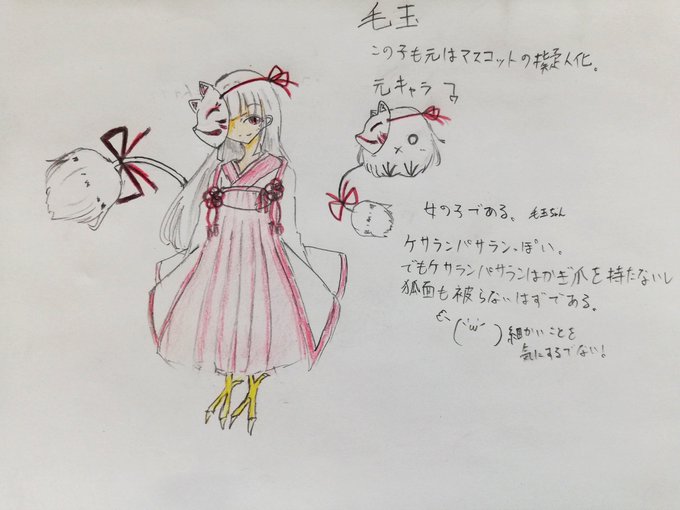 毛玉
この子も元はマスコットの擬人化。
元キャラ
女の子である。 毛玉ちゃん
ケサランパサランっぽい。
でもケサランパサランはかぎ爪を持たないし
狐面も被らないはずである。
(´ω`)細かいことを
気にするでない!